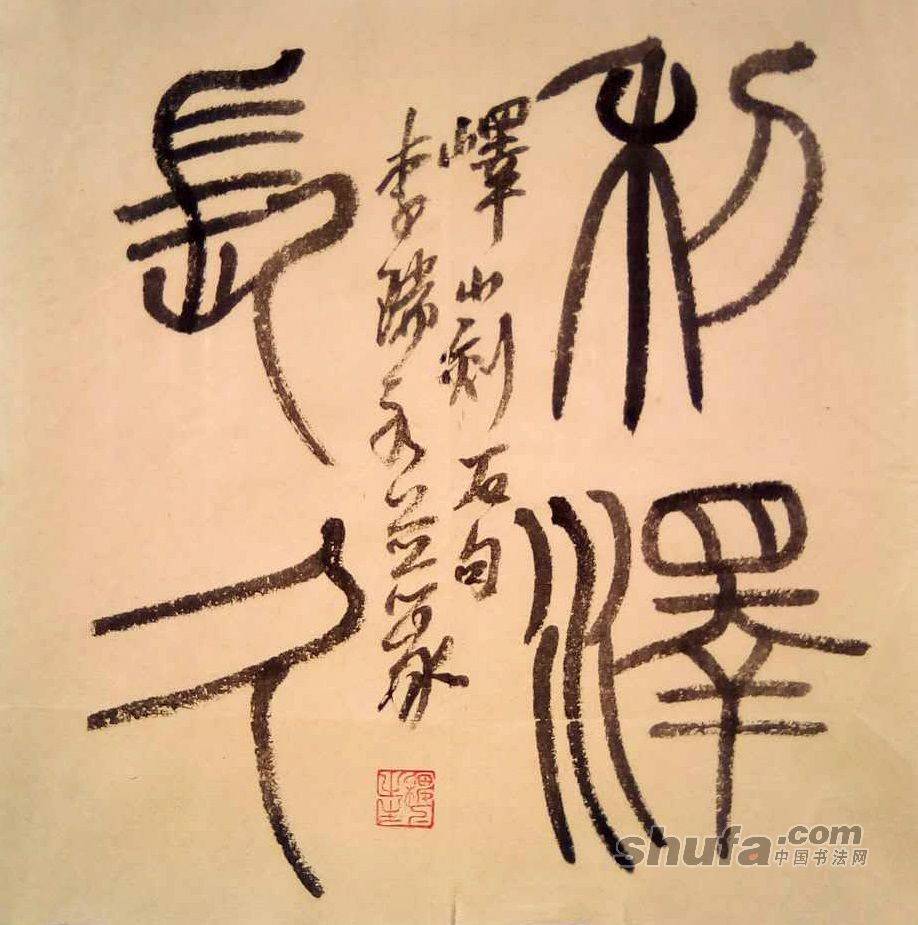 利澤
長久
嶧山刻石句
李
篆
shufa.com
中国书法网